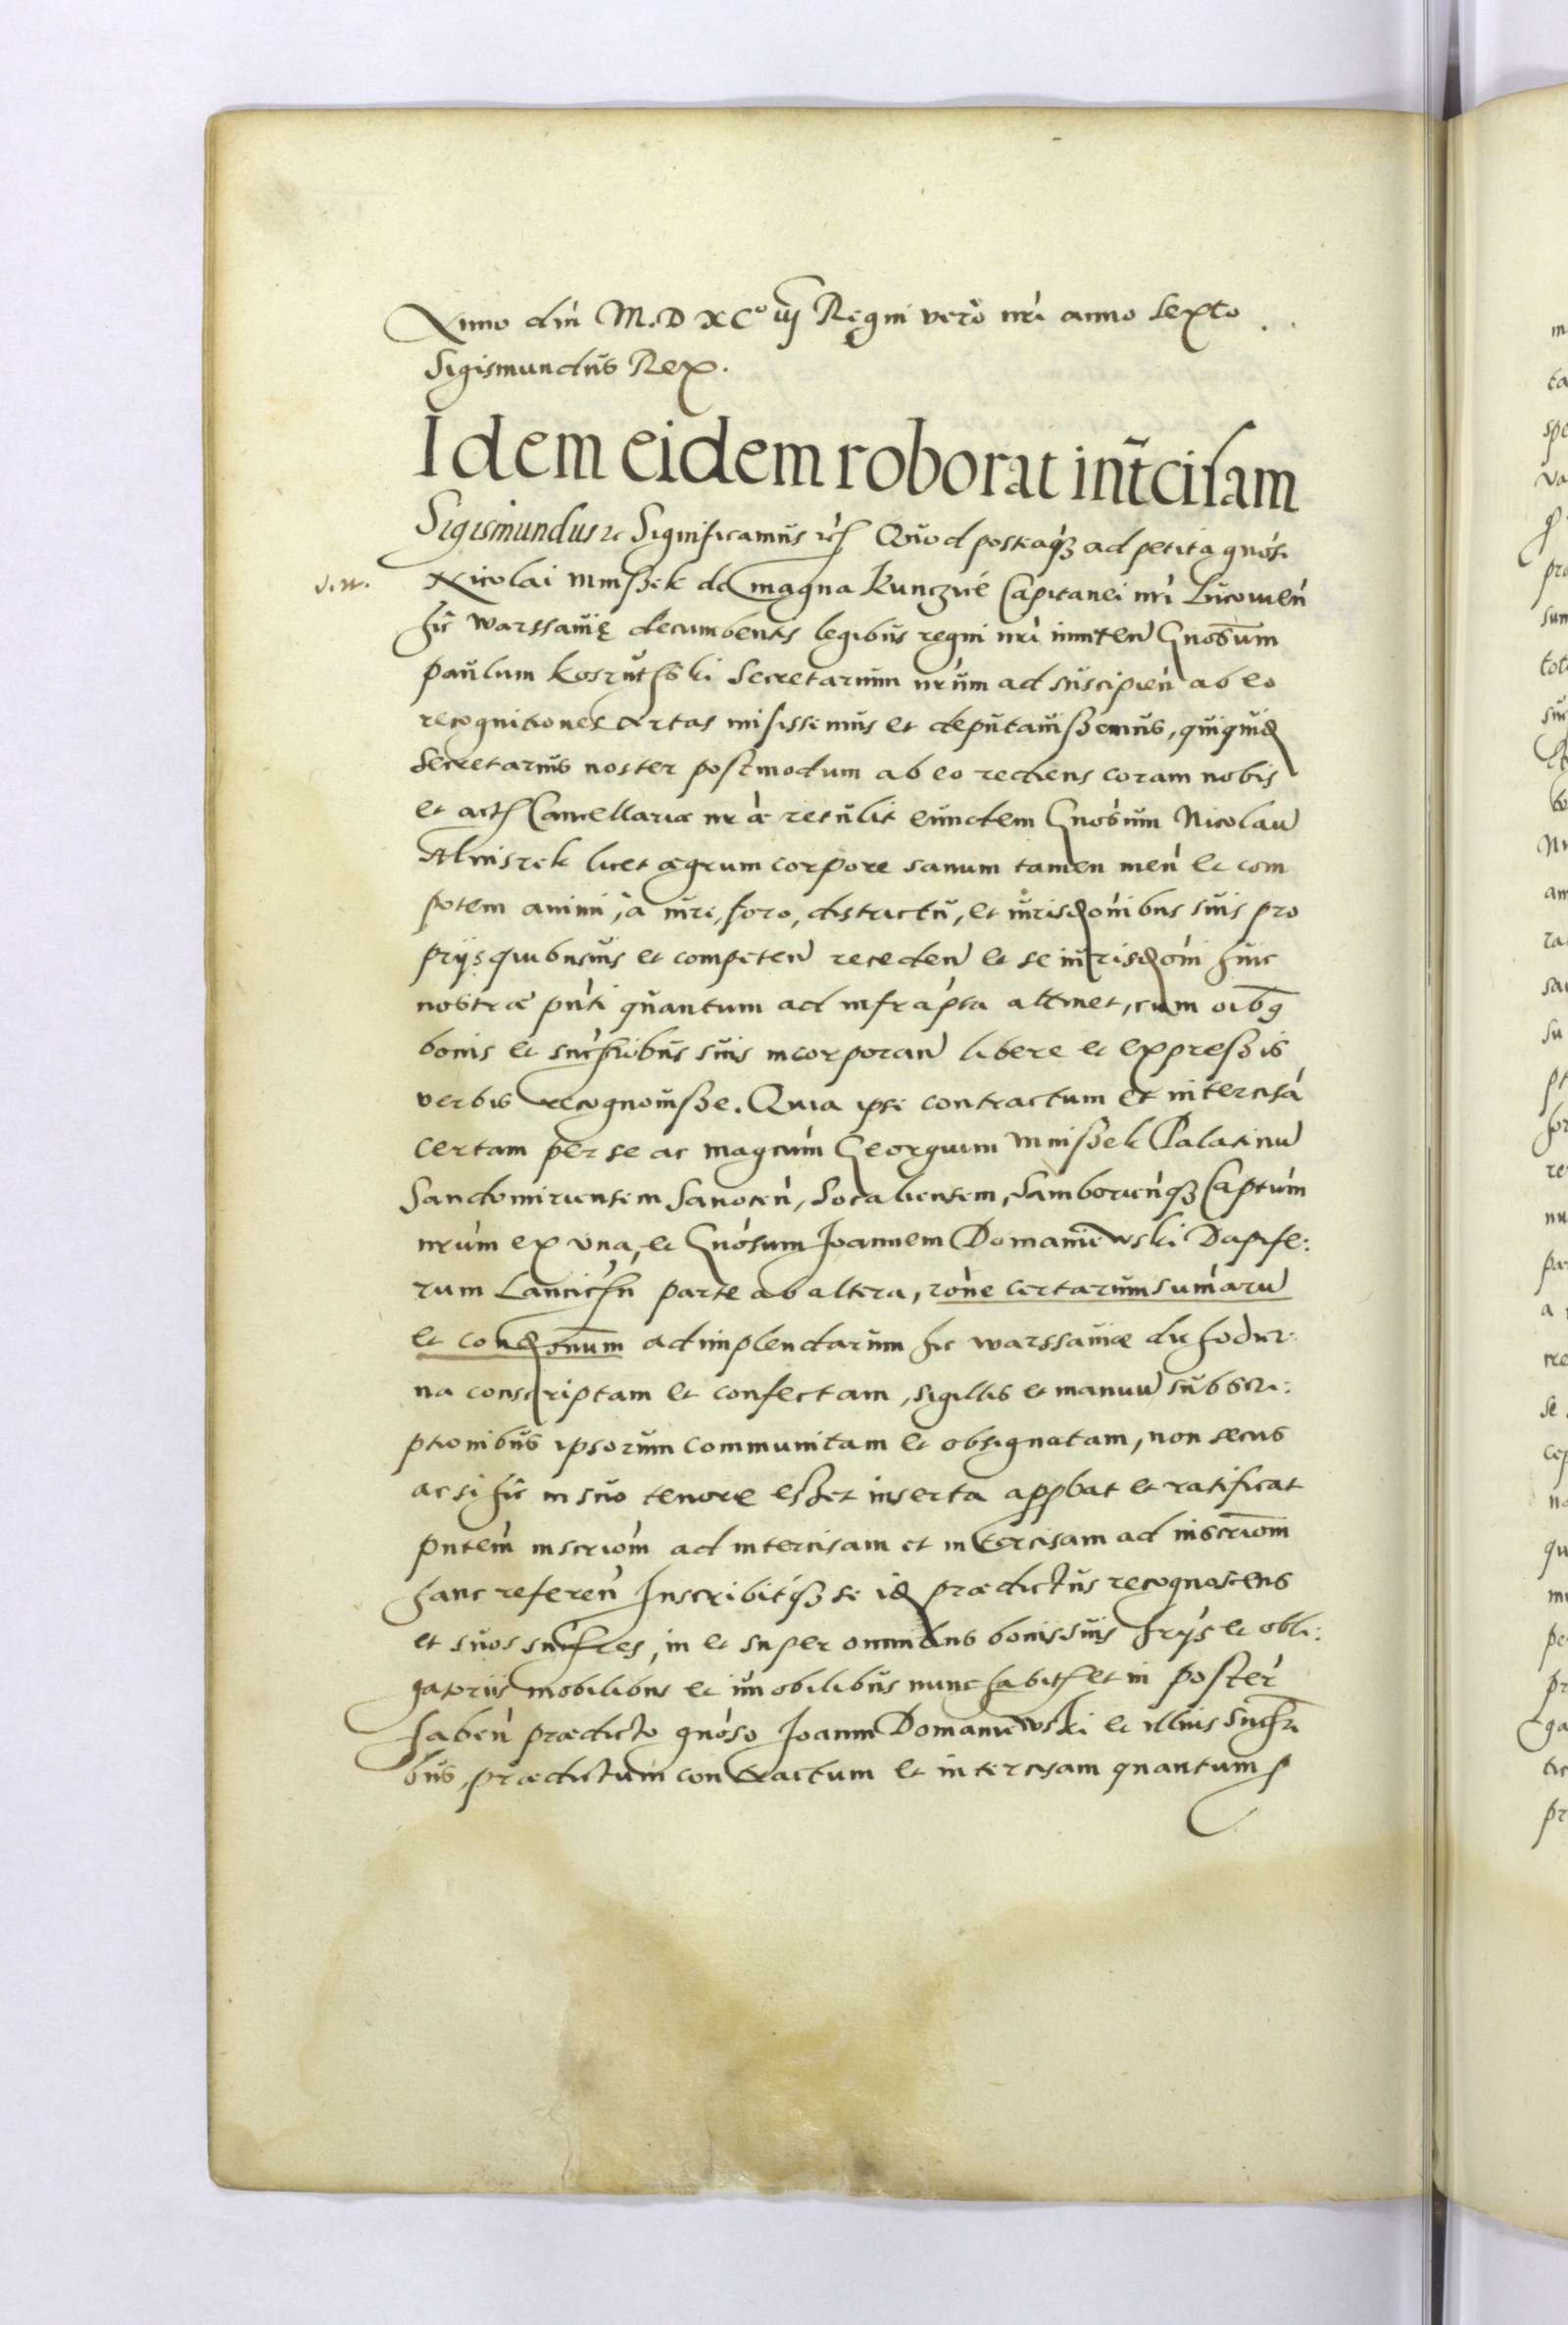 Anno dni M.D XC° iij Regni vero nri anno Sexto
Sigismundus Rex.
Idem eidem roborat int̃cisam
Sigismundus &c Significamus &c Quod posteaq3 ad petita gnosi
Nicolai Mnissek de magna Kunczicze Capitanei nri Lucovien
hic Warssaviæ decumbentis legibus regni nri inniten Gnosum
Paulum Kosrutski Secretarium nrum ad suscipien ab eo
recognitiones certas misissemus et deputavissemus, quiquid
Secretarius noster postmodum ab eo rediens coram nobis
et actis Cancellariæ nræ retulit eundem Gnosum Nicolau
Mniszek licet ægrum corpore sanum tamen men et com
potem animi, à iure, foro, districtu, et iurisdonibus suis pro
prijs quibusvis et competen receden et se iurisdoni huic
nostræ pnti quantum ad infrapta attinet, cum oibg
bonis et succribus suis incorporan libere et expressis
verbis recognovisse. Quia ipse contractum et intercisa
certam per se ac magcum Georgium Mnissek Palatinu
Sandomiriensem Sanocen, Socaliensem, Samborienq3 Captum
nrum ex una, et Gnosum Joannem Domaniewski Dapife:
rum Lancicien parte ab altera, rone certarum sumaru
et condonum adimplendarum hic Warssaviæ die hodier:
na conscriptam et confectam, sigillis et manuu subscri:
ptionibus ipsorum communitam et obsignatam, non secus
ac si hic in suo tenore esset inserta appbat et ratificat
pntem inscriom ad intercisam et intercisam ad inscriom
hanc referen Inscribitq3 se id prædictus recognoscens
et suos succres, in et super omnibus bonis suis hrijs et obli:
gatoriis mobilibus et imobilibus nunc habitis et in poster
haben prædicto gnoso Joanni Domaniewski et illius succri
bus, prædictum contractum et intercisam quantum p